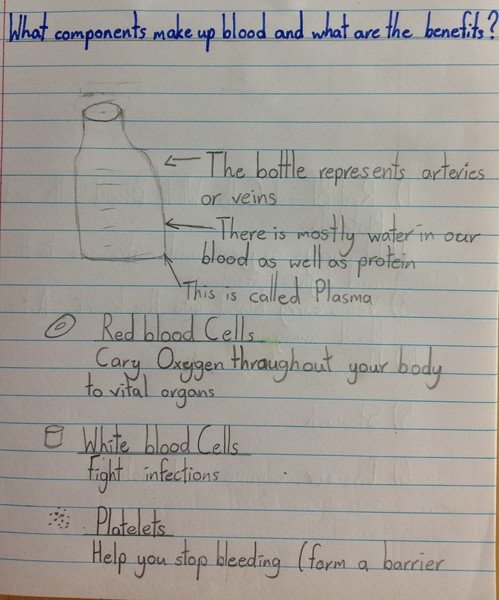 What components make up blood and what are the benefits?
The bottle represents arteries
or veins
There is mostly water in our
blood as well as protein
This is called Plasma
Red blood Cells
Cary Oxegen throughout your body
to vital organs
White blood Cells
Fight infections
Platelets
Help you stop bleeding (form a barrier